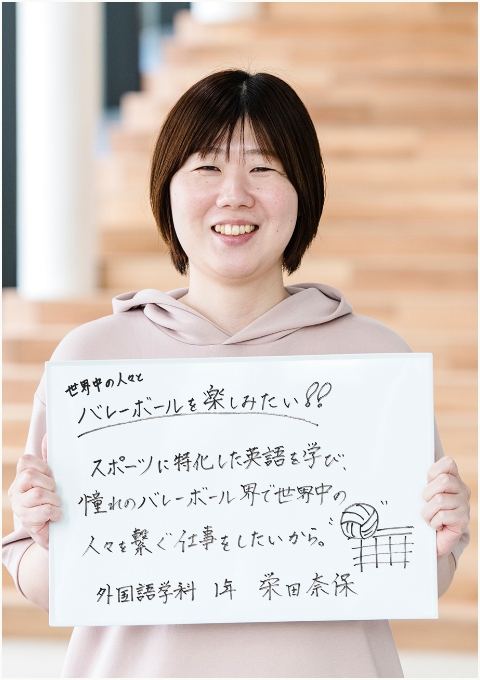 世界中の人々と
バレーボールを楽しみたい!!
スポーツに特化した英語を学び、
憧れのバレーボール界で世界中の
人々を繋ぐ仕事をしたいから。
外国語学科 1年 栄田奈保